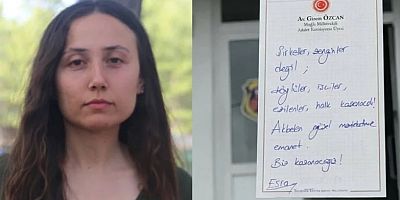 Av. Gizem ÖZCAN
Muğla Milletvekili
Adalet Komisyonu Üyesi
Şirketler, zenginler
değil;
köylüler, işçiler,
ezilenler, halk kazanacak!
Akbelen güzel memleketime
emanet.
Biz kazanacağız!
Esra